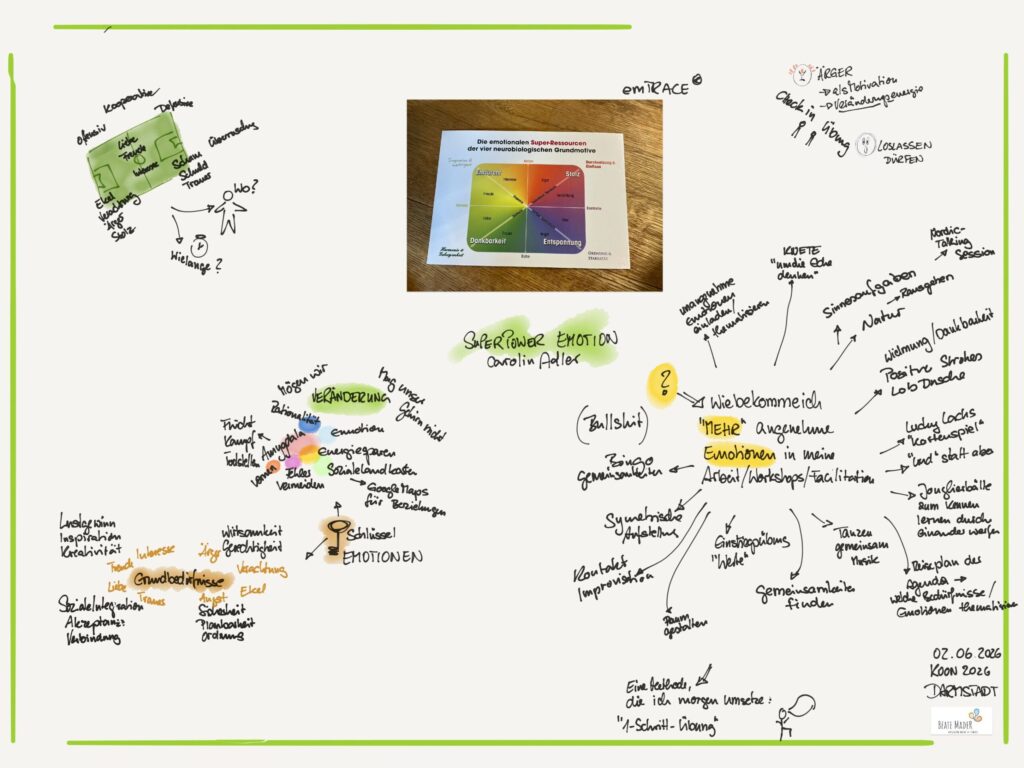 Kooperative
Defensive
offensiv
Liebe
Freude
Scham
Schuld
Trauer
Ekel
Verachtung
Ärger
Stolz
Wo?
Wielange?
emTRACE®
Die emotionalen Super-Ressourcen
der vier neurobiologischen Grundmotive
Stolz
Dankbarkeit
Entspannung
ÄRGER
→ als Motivation
→ Veränderungsenergie
Check in Übung
LOSLASSEN
DÜRFEN
SUPERPOWER EMOTION
Carolin Adler
Mögen wir
VERÄNDERUNG
Mag unser
Gehirn nicht
Rationalität
emotion
Amygdala
energiesparen
Flucht
Kampf
Totstellen
lernen
Fehler
vermeiden
Soziale Landkarten
Google Maps
für Beziehungen
Schlüssel
EMOTIONEN
Lustgewinn
Inspiration
Kreativität
Wirksamkeit
Gerechtigkeit
Interesse
Freude
Ärger
Verachtung
Grundbedürfnisse
Liebe
Trauer
Angst
Ekel
Soziale Integration
Akzeptanz
Verbindung
Sicherheit
Planbarkeit
Ordnung
?
Wie bekomme ich
"MEHR" angenehme
Emotionen in meine
Arbeit/Workshops/Facilitation
unangenehme
Emotionen
einladen/
thematisieren
KNETE
"um die Ecke
denken"
Sinnesaufgaben
Natur
→ Rausgehen
Nordic-
Talking
Session
Widmung/Dankbarkeit
Positive Strokes
Lob Dusche
Lucky Lachs
"Kartenspiel"
"und" statt aber
Jonglierbälle
zum Kennen
lernen durch
einander werfen
Reiseplan des
Agenda →
welche Bedürfnisse/
Emotionen thematisieren
Tanzen
gemeinsam
Musik
Gemeinsamkeiten
finden
Einstiegsübung
"Werte"
Raum
gestalten
Kontakt
Improvisation
Symetrische
Aufstellung
(Bullshit)
Bingo
Gemeinsamkeiten
Eine Methode,
die ich morgen umsetze:
"1-Schritt-Übung"
02.06.2026
KOON 2026
DARMSTADT
BEATE MADER